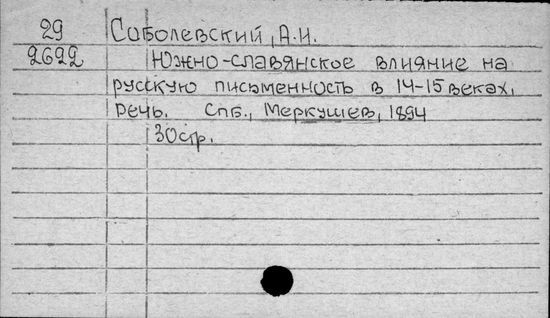 29 Соболевский, А.И.
2622 Южно-славянское влияние на
русскую письменность в 14-15 веках.
Речь. Спб., Меркушев, 1894
30стр.